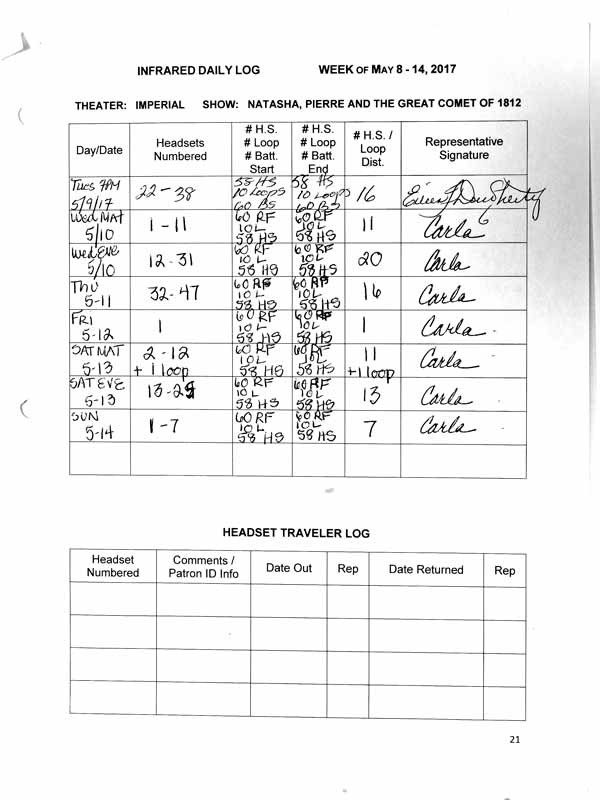 INFRARED DAILY LOG WEEK OF MAY 8 - 14, 2017
THEATER: IMPERIAL SHOW: NATASHA, PIERRE AND THE GREAT COMET OF 1812
Day/Date Headsets Numbered # H.S. # Loop # Batt. Start # H.S. # Loop # Batt. End # H.S. / Loop Dist. Representative Signature
Tues 7PM 5/9/17 22-38 58 HS 10 Loops 60 BS 58 HS 10 Loops 60 BS 16
Wed MAT 5/10 1-11 60 RF 10L 58 HS 60 RF 10L 58 HS 11 Carla
Wed EVE 5/10 12-31 60 RF 10L 58 HS 60 RF 10L 58 HS 20 Carla
THU 5-11 32-47 60 RF 10L 58 HS 60 RF 10L 58 HS 16 Carla
FRI 5-12 1 60 RF 10L 58 HS 60 RF 10L 58 HS 1 Carla
SAT MAT 5-13 2-12 + 1 loop 60 RF 10L 58 HS 60 RF 10L 58 HS 11 +1 loop Carla
SAT EVE 5-13 13-25 60 RF 10L 58 HS 60 RF 10L 58 HS 13 Carla
SUN 5-14 1-7 60 RF 10L 58 HS 60 RF 10L 58 HS 7 Carla
HEADSET TRAVELER LOG
Headset Numbered Comments / Patron ID Info Date Out Rep Date Returned Rep
21